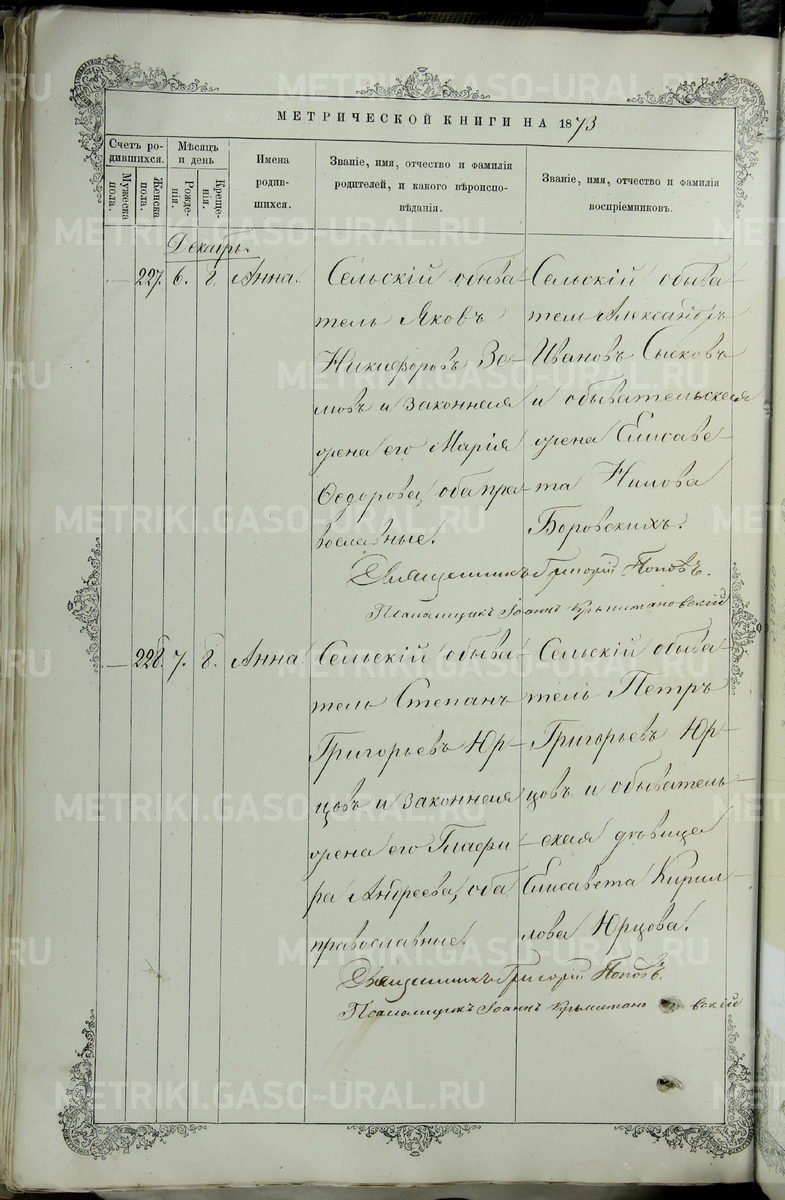 МЕТРИЧЕСКОЙ КНИГИ НА 1873
Счетъ родившихся.
Мужеска пола.
Женска пола.
Мѣсяцъ и день
Рожденія.
Крещенія.
Имена родившихся.
Званіе, имя, отчество и фамилія
родителей, и какого вѣроиспо-
вѣданія.
Званіе, имя, отчество и фамилія
воспріемниковъ.
Декабрь.
227. 6. 8. Анна.
Сельскій обыва-
тель Яковъ
Никифоровъ Зе-
мовъ и законная
жена его Марія
Ѳедорова, оба пра-
вославные.
Сельскій обыва-
тель Александръ
Ивановъ Сысковъ
и обывательская
жена Елисаве-
та Нилова
Боровскихъ.
Священникъ Григорій Поповъ.
Псаломщикъ Іоаннъ
228. 7. 8. Анна.
Сельскій обыва-
тель Степанъ
Григорьевъ Юр-
цовъ и законная
жена его Глафи-
ра Андреева, оба
православные.
Сельскій обыва-
тель Петръ
Григорьевъ Юр-
цовъ и обыватель-
ская дѣвица
Елисавета Кирил-
лова Юрцова.
Священникъ Григорій Поповъ.
Псаломщикъ Іоаннъ
METRIKI.GASO-URAL.RU